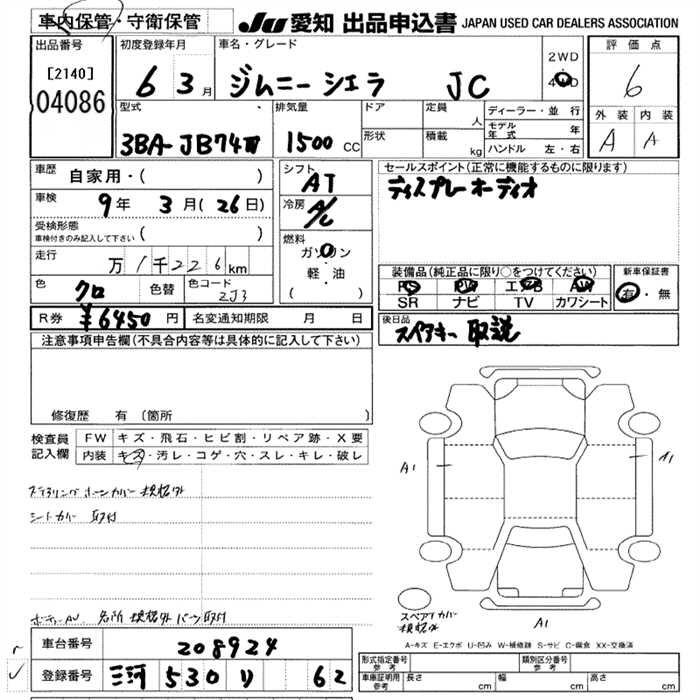 車内保管・守衛保管
JU 愛知 出品申込書 JAPAN USED CAR DEALERS ASSOCIATION
出品番号
[2140]
04086
初度登録年月
6 3月
車名・グレード
ジムニー シエラ JC
2WD
4WD
評価点
6
外装 内装
A A
型式
3BA-JB74W
排気量
1500 CC
ドア
形状
定員
人
積載
kg
ディーラー・並行
モデル年式 年
ハンドル 左・右
車歴
自家用・( )
車検
9年 3月(26日)
受検形態
車検付きのみ記入して下さい ( )
走行
万 1千226km
色
クロ
色替
色コード
ZJ3
シフト
AT
冷房
A/C
燃料
ガソリン
軽・油
( )
セールスポイント(正常に機能するものに限ります)
ディスプレーオーディオ
装備品(純正品に限り○をつけてください)
PS PW エアB AW
SR ナビ TV カワシート
新車保証書
有・無
R券 ¥6450円 名変通知期限 月 日
後日品
スペアキー 取説
注意事項申告欄(不具合内容等は具体的に記入して下さい)
修復歴 有(箇所 )
検査員記入欄
FW キズ・飛石・ヒビ割・リペア跡・X要
内装 キズ・汚レ・コゲ・穴・スレ・キレ・破レ
ステアリング ホーンカバー 規格外
シートカバー 取付
各所 規格外パーツ取付
A1
A1
A1
スペアTカバー
規格外
A-キズ E-エクボ U-凹み W-補修跡 S-サビ C-腐食 XX-交換済
車台番号 208924
登録番号 三河 530 リ 62
形式指定番号 参考
類別区分番号 参考
車庫証明用参考 長さ cm 幅 cm 高さ cm